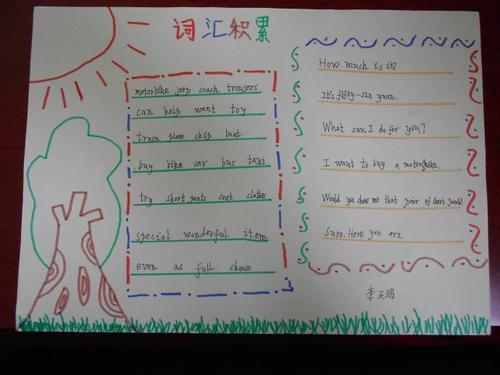 词汇积累
motorbike jeep coach trousers
can help want toy
train plane ship boat
buy bike car bus taxi
try short pants coat clothes
special wonderful item
even as full choose
How much is it?
It's fifty-six yuan.
What can I do for you?
I want to buy a motorbike.
Would you show me that pair of short pants?
Sure. Here you are.
李天瑞